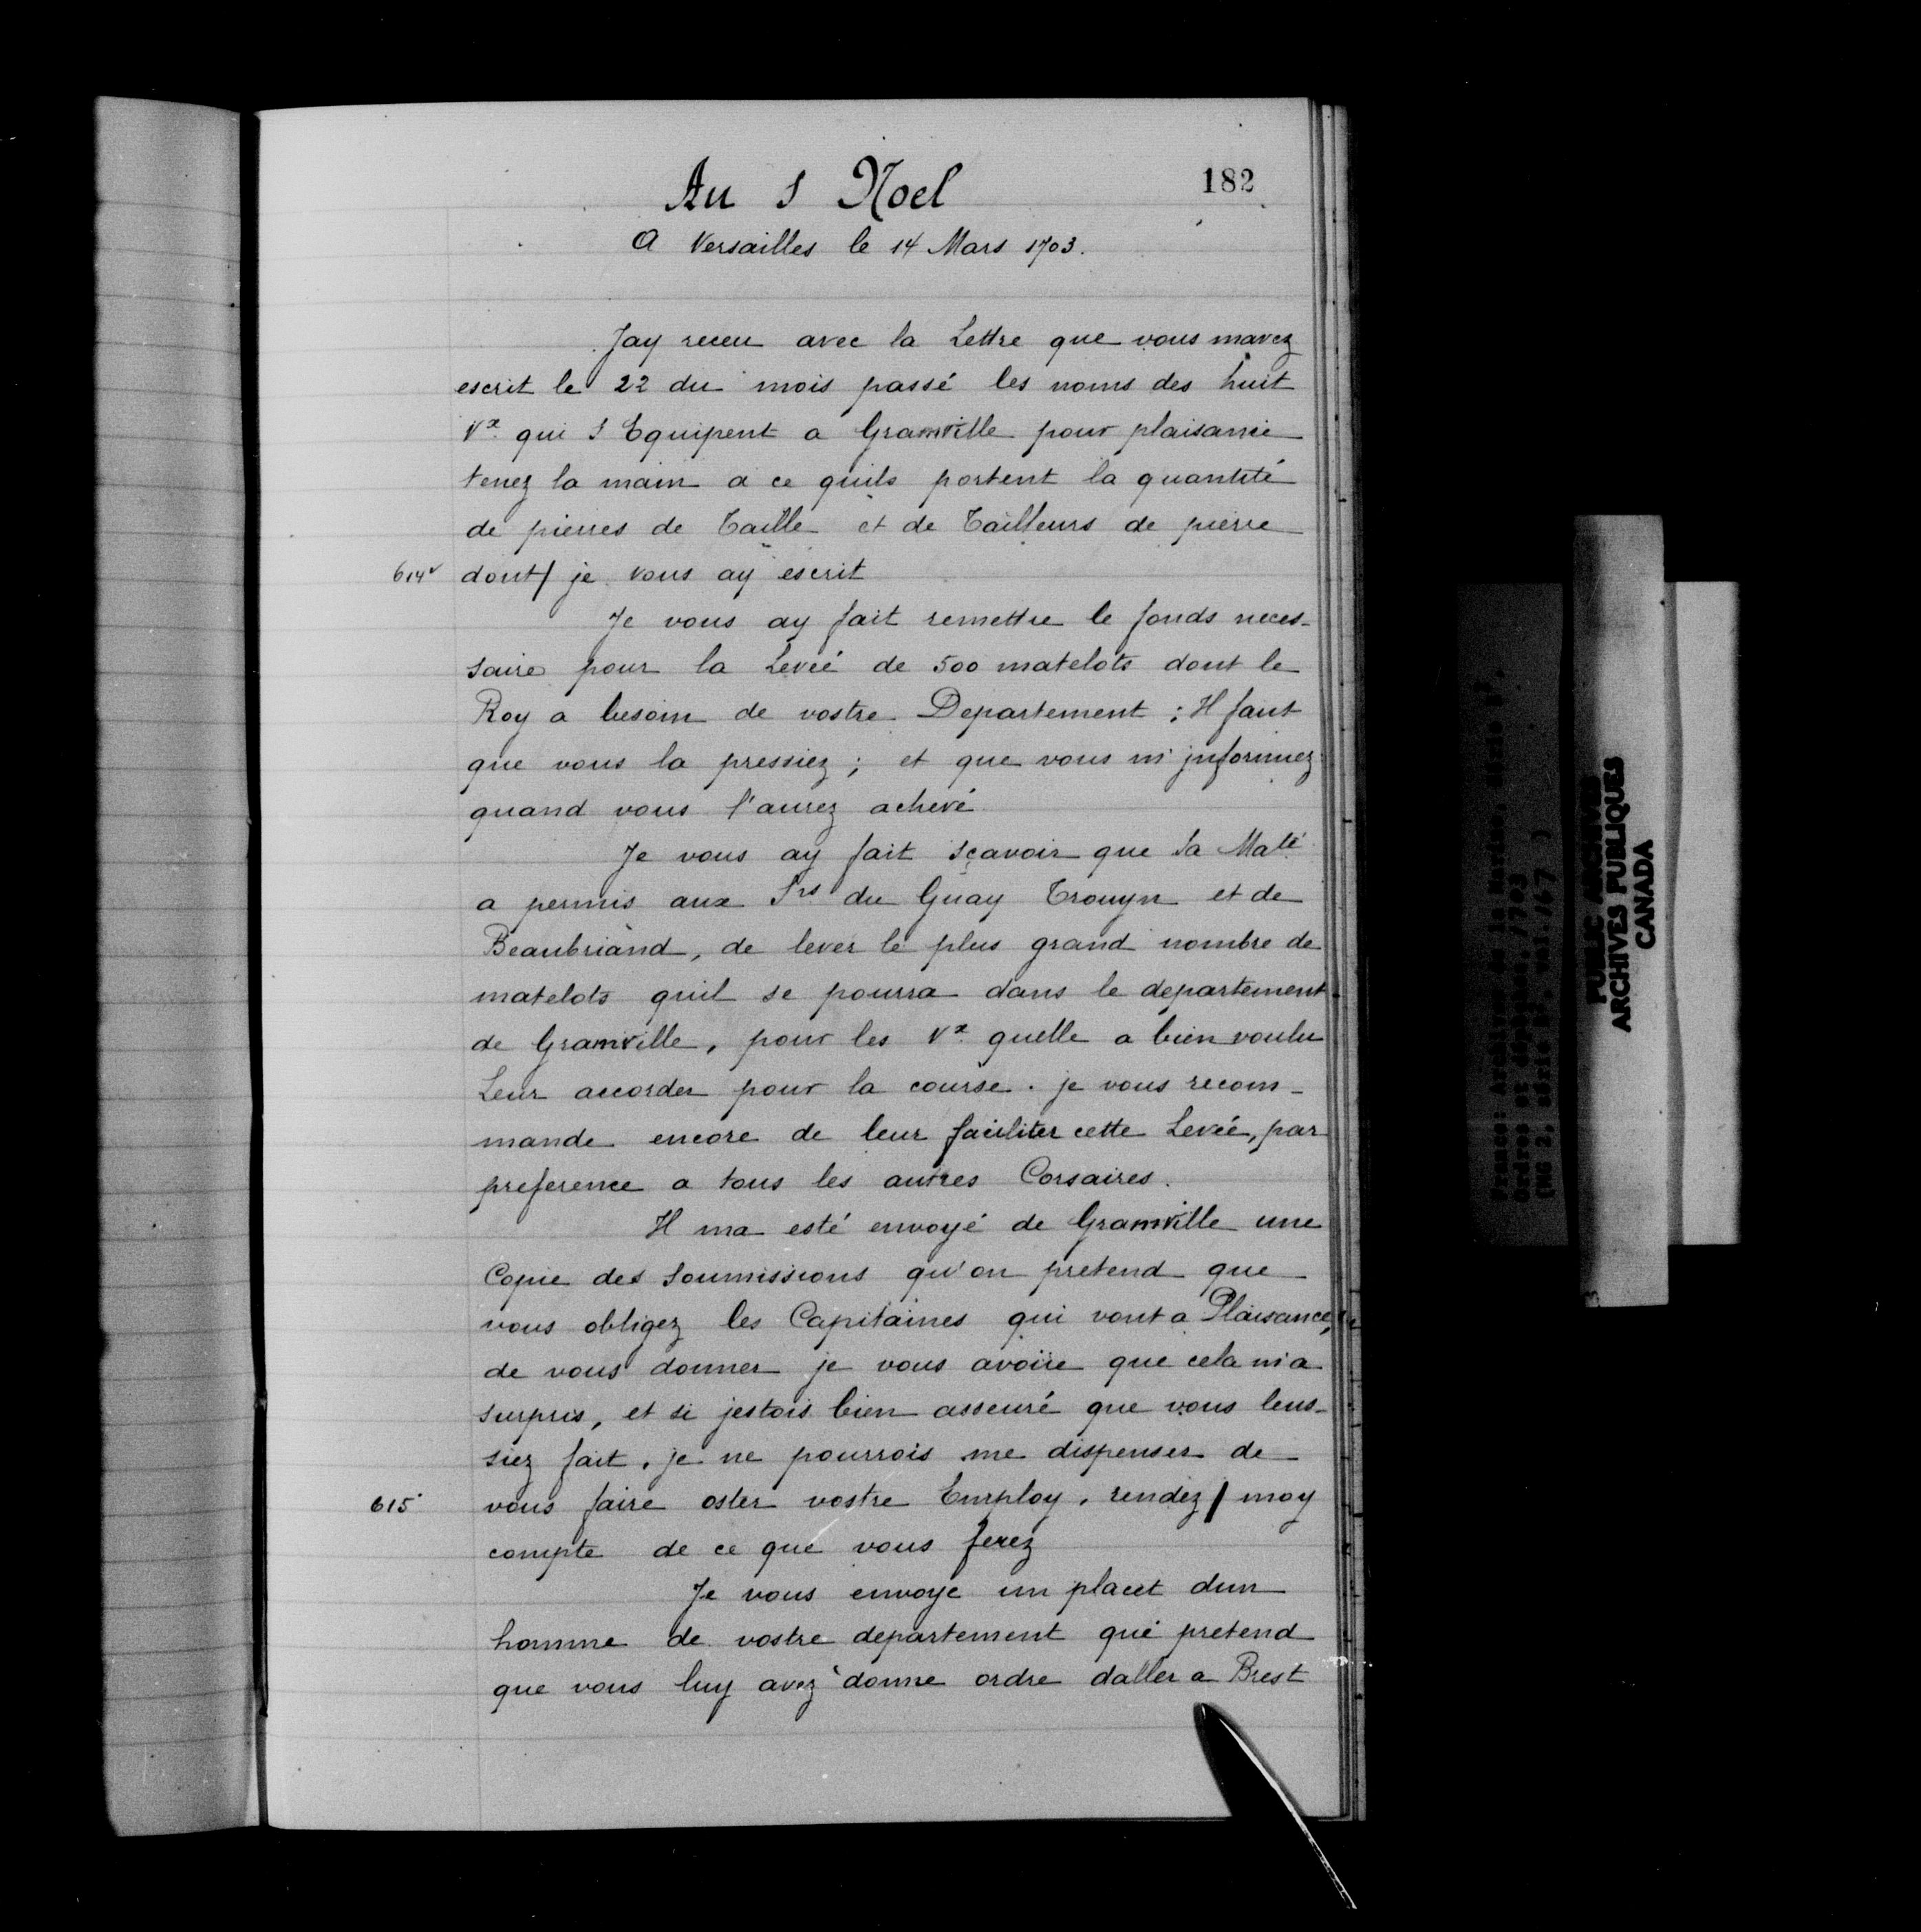 182
Au S Noel
A Versailles le 14 Mars 1703.
Jay receu avec la Lettre que vous mavez
escrit le 22 du mois passé les noms des huit
Vx qui S Equipent a Granville pour plaisance
tenez la main a ce quils portent la quantité
de pierres de Taille et de Tailleurs de pierre
614v dont/ je vous ay escrit
Je vous ay fait remettre le fonds neces-
saire pour la Levée de 500 matelots dont le
Roy a besoin de vostre Departement ; Il faut
que vous la pressiez ; et que vous m'jnformiez
quand vous l'aurez achevé
Je vous ay fait sçavoir que Sa Maté
a permis aux Srs du Guay Trouyn et de
Beaubriand, de lever le plus grand nombre de
matelots quil se pourra dans le departement
de Granville, pour les Vx quelle a bien voulu
Leur accorder pour la course. je vous recom-
mande encore de leur faciliter cette Levée, par
preference a tous les autres Corsaires.
Il ma esté envoyé de Granville une
Copie des Soumissions qu'on pretend que
vous obligez les Capitaines qui vont a Plaisance,
de vous donner je vous avoüe que cela m'a
surpris, et si jestois bien asseuré que vous leus-
siez fait, je ne pourrois me dispenser de
615 vous faire oster vostre Employ, rendez/ moy
compte de ce que vous ferez
Je vous envoye un placet dun
homme de vostre departement qui pretend
que vous luy avez donne ordre daller a Brest
PUBLIC ARCHIVES
ARCHIVES PUBLIQUES
CANADA